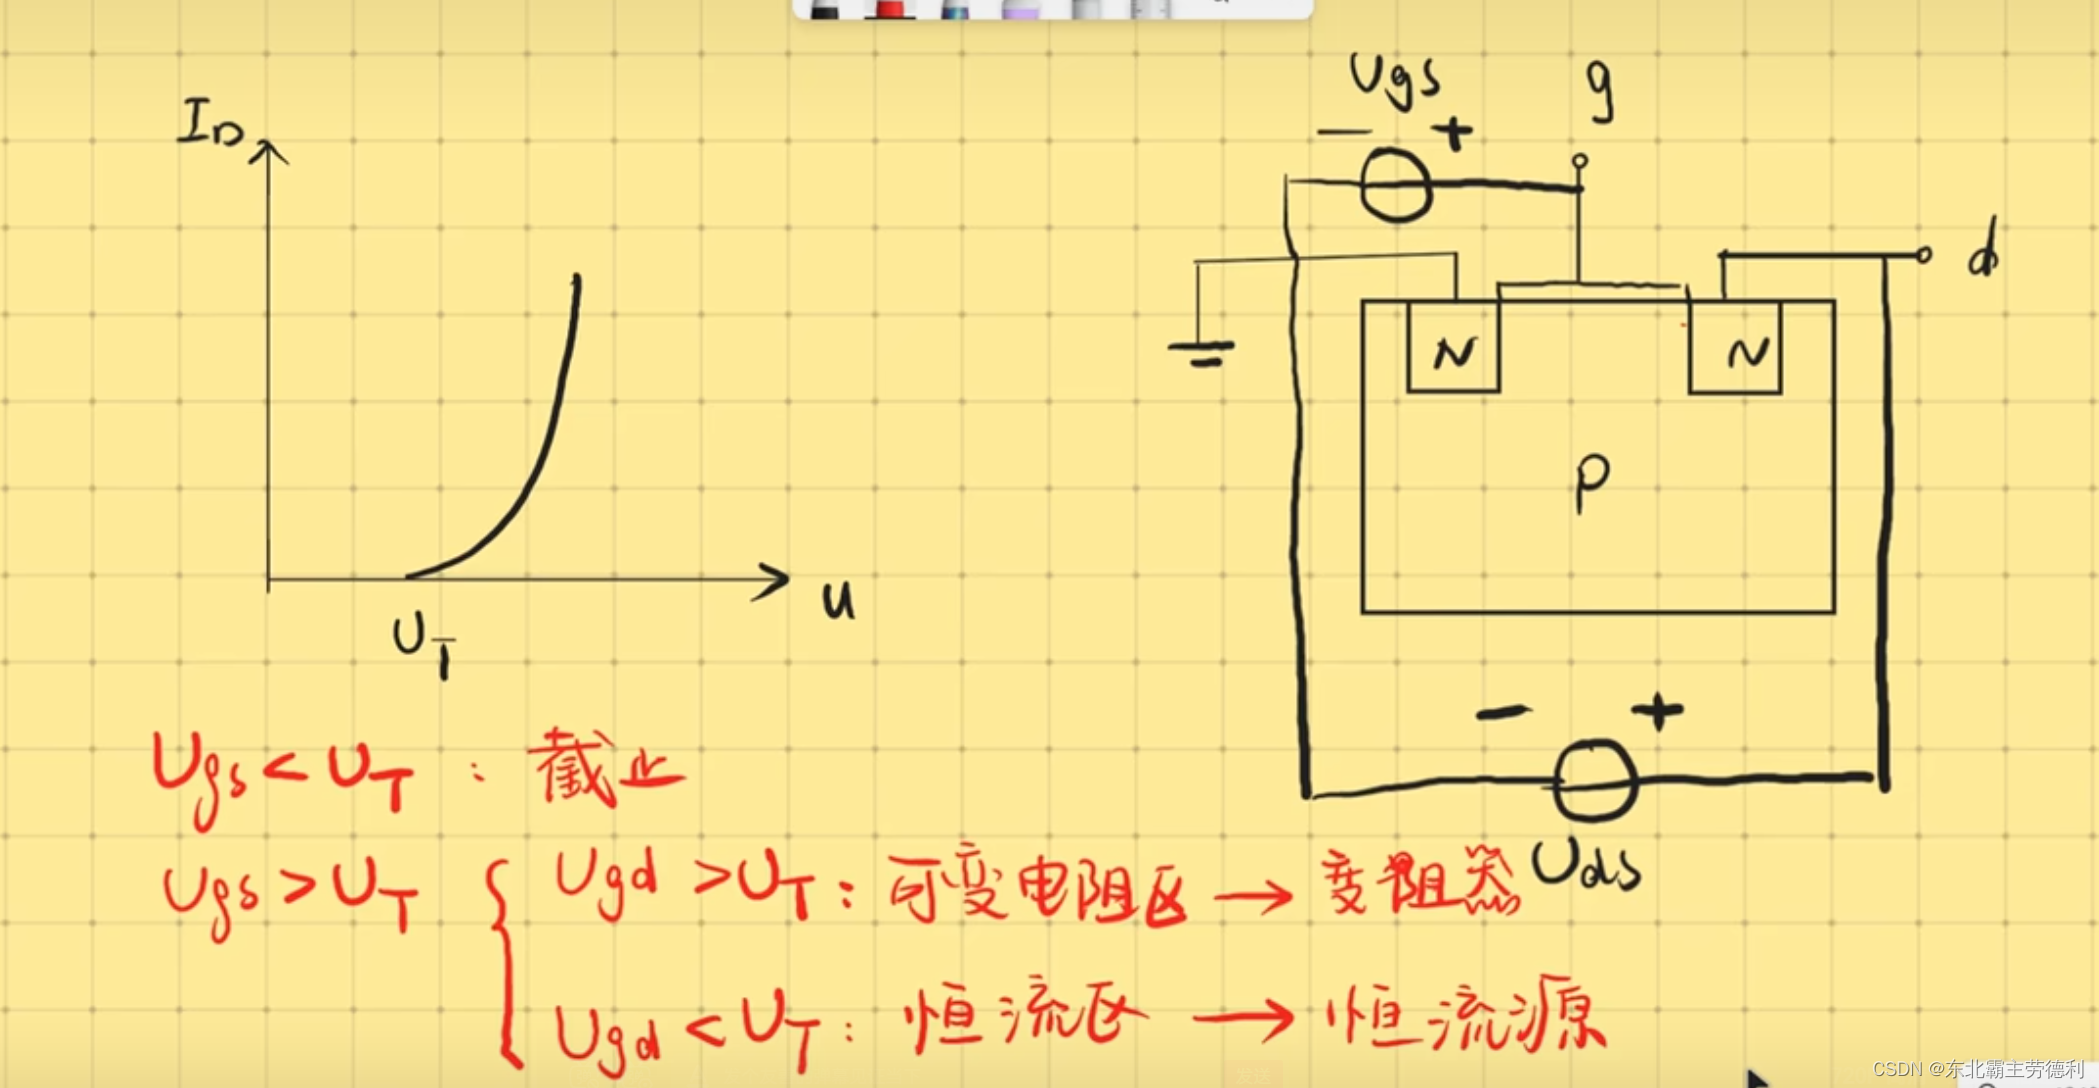 I_D
u
U_T
Ugs
g
− +
d
N
N
P
− +
Uds
Ugs < U_T : 截止
Ugs > U_T { Ugd > U_T : 可变电阻区 → 变阻器
Ugd < U_T : 恒流区 → 恒流源
CSDN @东北霸主劳德利